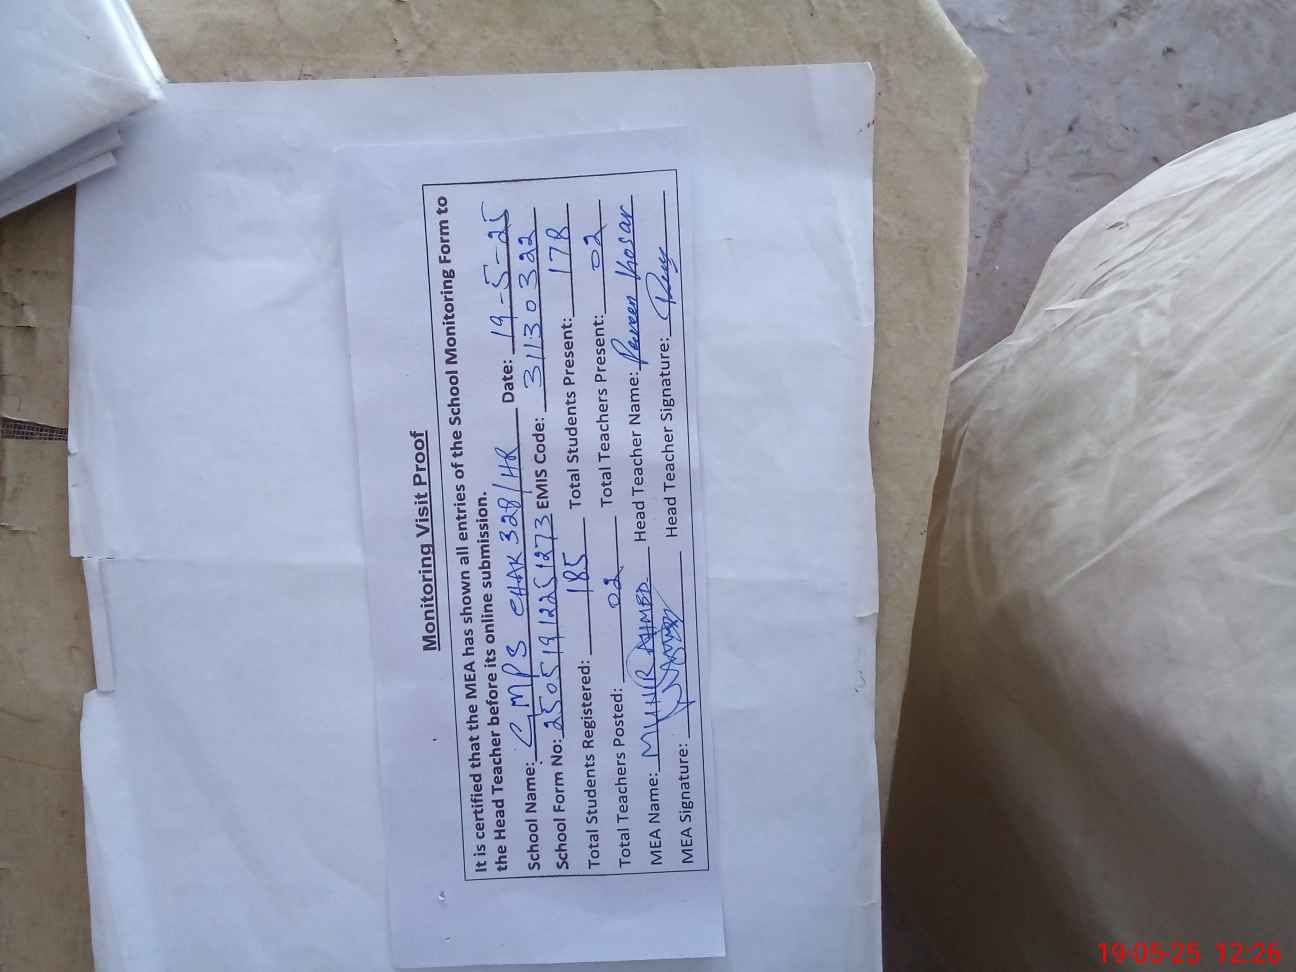 Monitoring Visit Proof
It is certified that the MEA has shown all entries of the School Monitoring Form to
the Head Teacher before its online submission.
School Name: GMPS CHAK 328/HR Date: 19-5-25
School Form No: 25051912251273 EMIS Code: 31130322
Total Students Registered: 185 Total Students Present: 178
Total Teachers Posted: 02 Total Teachers Present: 02
MEA Name: MUNIR AHMED Head Teacher Name: Parveen Kosar
MEA Signature: Head Teacher Signature:
19-05-25 12:26